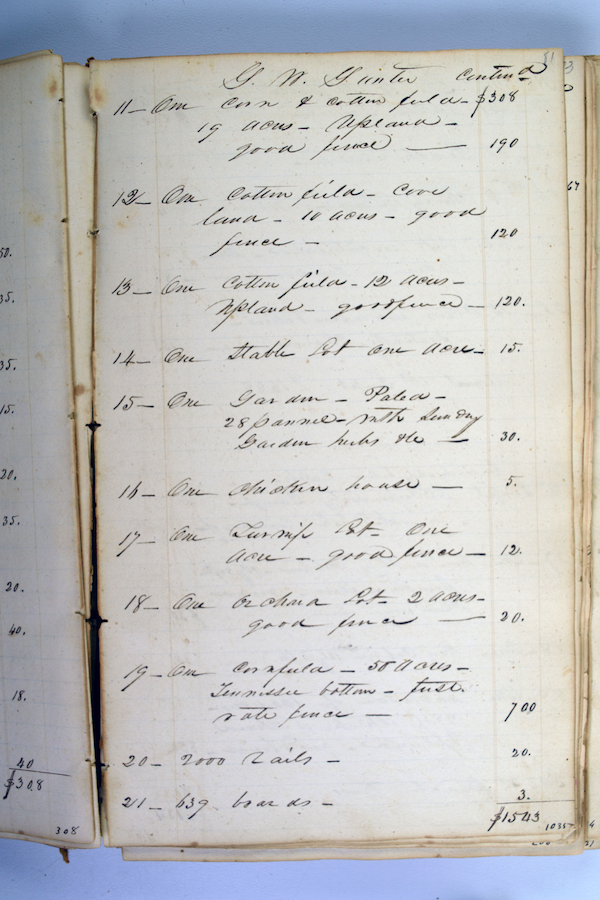 50.
35.
35.
15.
20.
35.
20.
40.
18.
40
$308
308
51
G. W. Gunter Contind
11 — One Corn & Cotton field - $308
19 acres - Upland -
good fence — 190
12 — One Cotton field - Cove
land - 10 acres - good
fence - 120
13 — One Cotton field - 12 acres -
Upland - good fence - 120.
14 — One Stable Lot one acre - 15.
15 — One Garden - Paled -
28 pannel - with Sundry
Garden herbs &c — 30.
16 — One Chicken house — 5.
17 — One Turnip Lot - One
acre - good fence — 12.
18 — One Orchard Lot - 2 acres -
good fence — 20.
19 — One Cornfield - 50 acres -
Tennessee bottom - first
rate fence — 700
20 — 2000 Rails - 20.
21 — 639 boards - 3.
$1543
1035